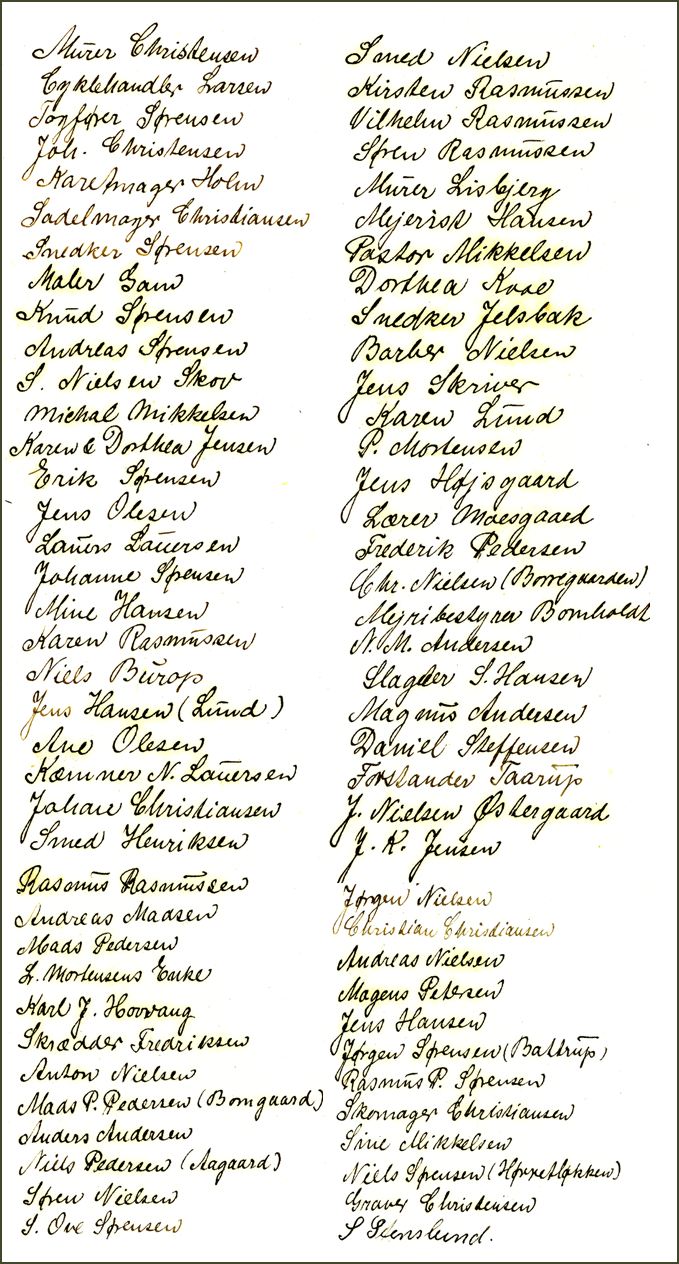 Murer Christensen
Cyklehandler Larsen
Togfører Sørensen
Joh. Christensen
Karetmager Holm
Sadelmager Christiansen
Snedker Sørensen
Maler Gam
Knud Sørensen
Andreas Sørensen
S. Nielsen Skov
Michal Mikkelsen
Karen & Dorthea Jensen
Erik Sørensen
Jens Olesen
Laurs Laursen
Johanne Sørensen
Mine Hansen
Karen Rasmussen
Niels Burop
Jens Hansen (Lund)
Ane Olesen
Kæmner N. Laursen
Johane Christiansen
Smed Henriksen
Rasmus Rasmussen
Andreas Madsen
Mads Pedersen
L. Mortensens Enke
Karl J. Hovvang
Skrædder Fredriksen
Anton Nielsen
Mads P. Pedersen (Bomgaard)
Anders Andersen
Niels Pedersen (Aagaard)
Søren Nielsen
S. Ove Sørensen
Smed Nielsen
Kirsten Rasmussen
Vilhelm Rasmussen
Søren Rasmussen
Murer Lisbjerg
Mejerist Hansen
Pastor Mikkelsen
Dorthea Krae
Snedker Jelsbak
Barber Nielsen
Jens Skriver
Karen Lund
P. Mortensen
Jens Højsgaard
Lærer Moesgaard
Frederik Pedersen
Chr. Nielsen (Borregaarden)
Mejribestyrer Bomholdt
N. M. Andersen
Slagter S. Hansen
Magnus Andersen
Daniel Steffensen
Forstander Taarup
J. Nielsen Østergaard
J. K. Jensen
Jørgen Nielsen
Christian Christiansen
Andreas Nielsen
Magens Petersen
Jens Hansen
Jørgen Sørensen (Battrup)
Rasmus P. Sørensen
Skomager Christiansen
Sine Mikkelsen
Niels Sørensen (Hørretløkken)
Graver Christensen
S Stenslund.